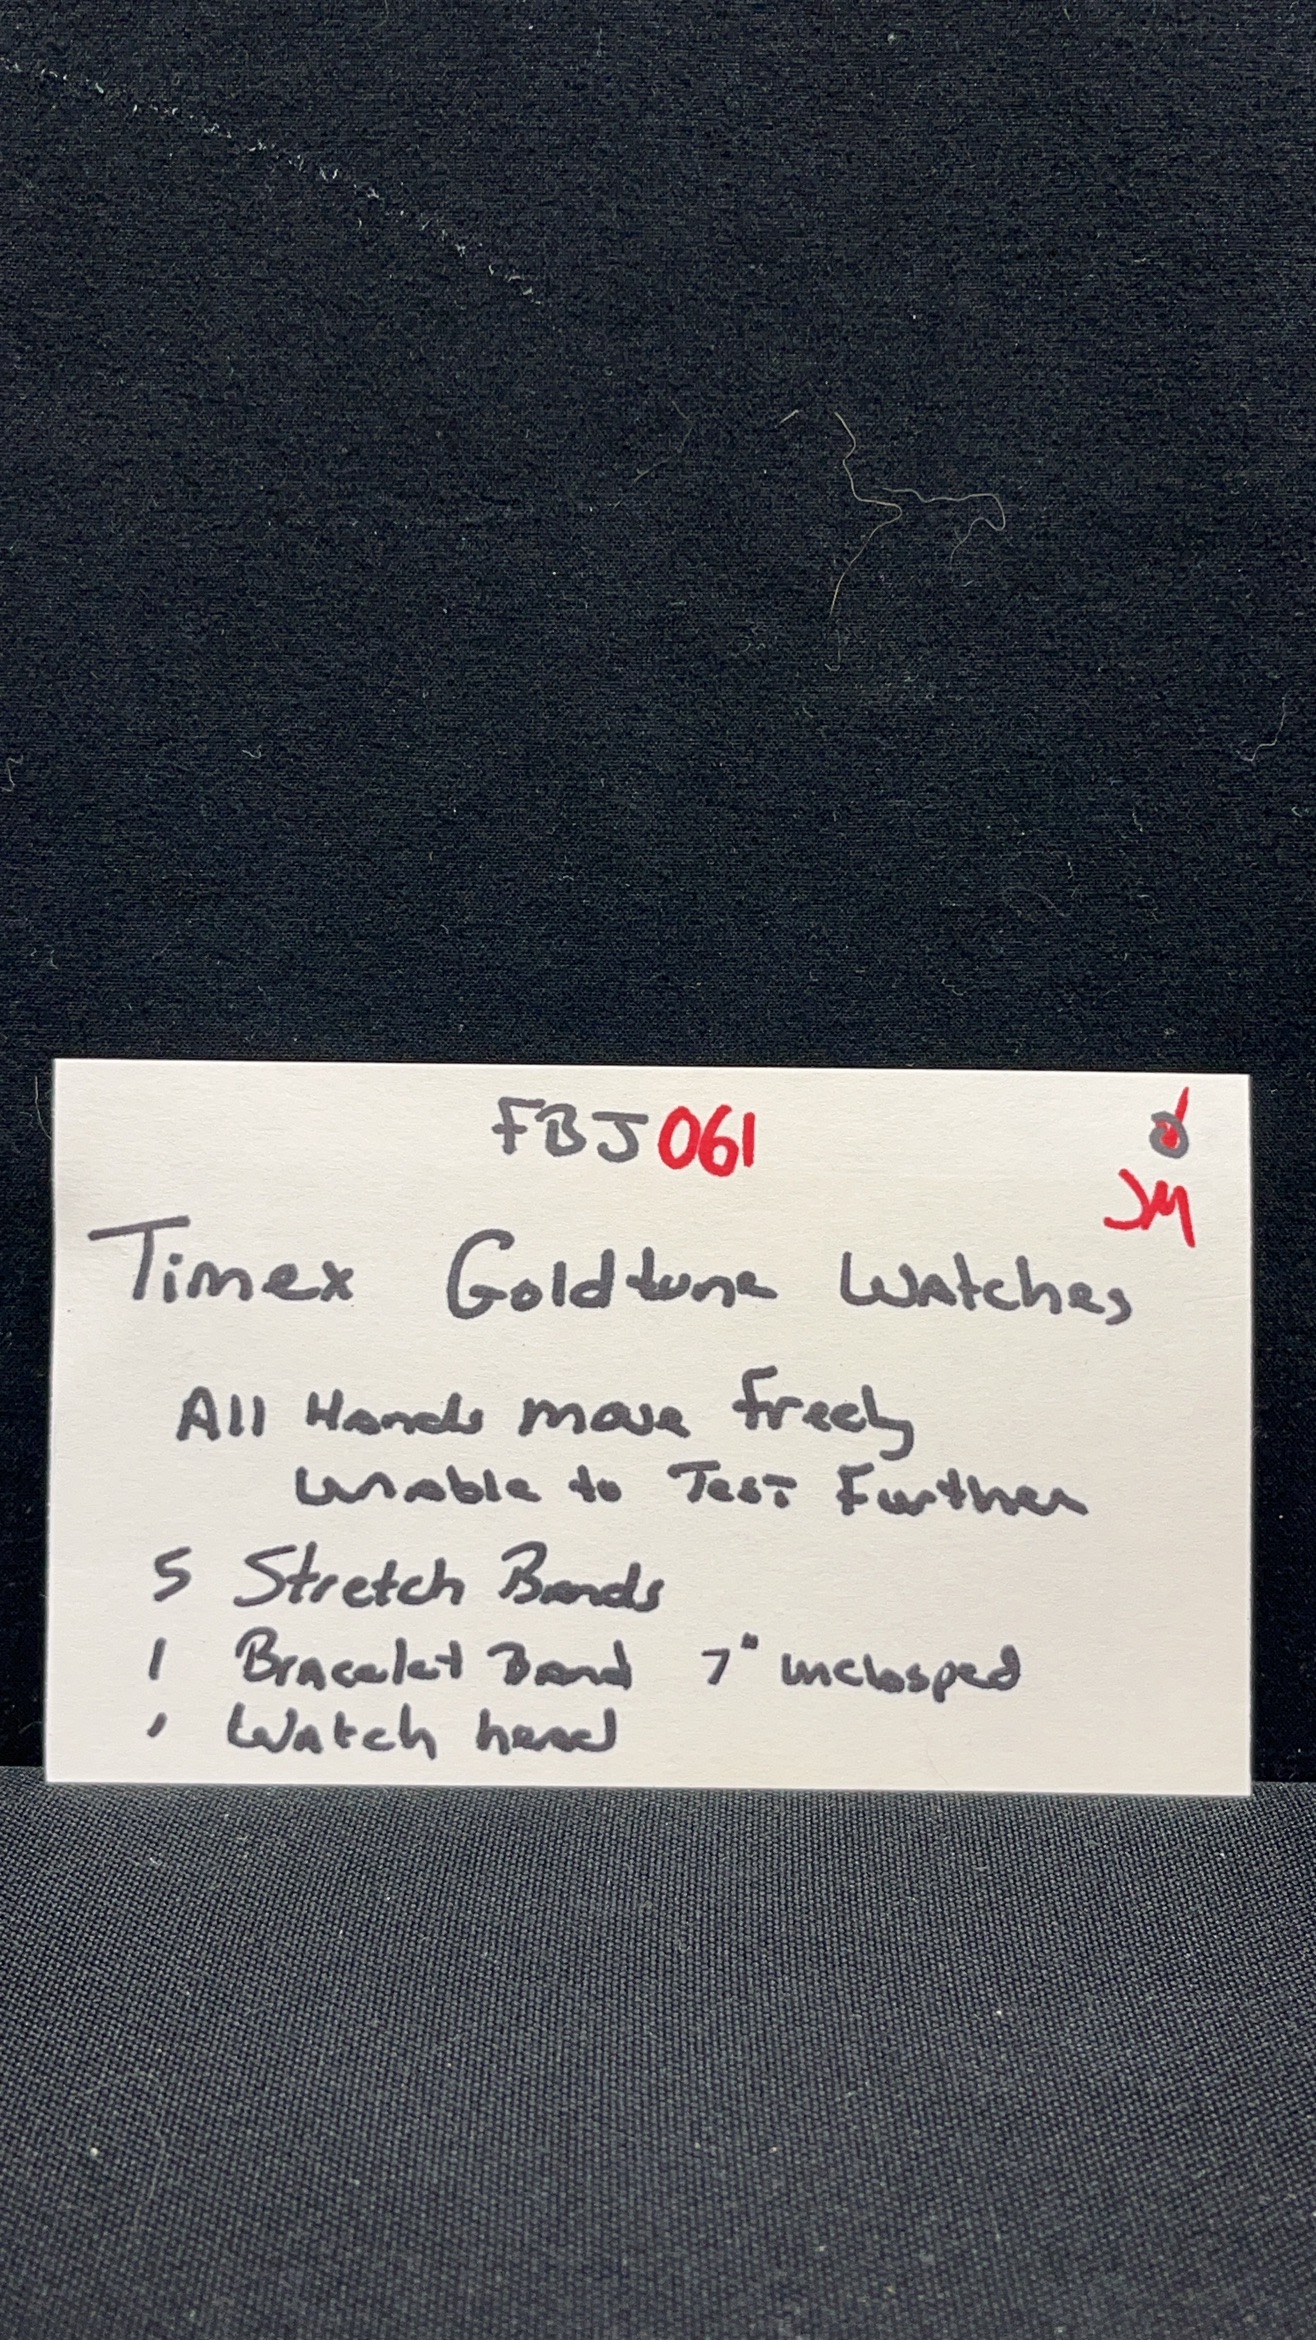 FBJ061
JM
Timex Goldtone Watches
All Hands move freely
unable to Test Further
5 Stretch Bands
1 Bracelet Band 7" unclasped
1 Watch head